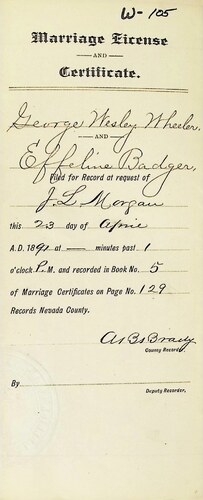 W-105
Marriage License
AND
Certificate.
George Wesley Wheeler
AND
Effeline Badger,
Filed for Record at request of
J. L. Morgan
this 23 day of April
A.D. 1891 at — minutes past 1
o'clock P.M. and recorded in Book No. 5
of Marriage Certificates on Page No. 129
Records Nevada County.
Brady
County Recorder
By
Deputy Recorder,